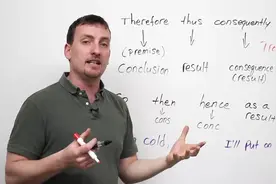 Therefore thus consequently
(premise)
Conclusion result consequence
(result)
then hence as a
cons conc result
cold, I'll put on